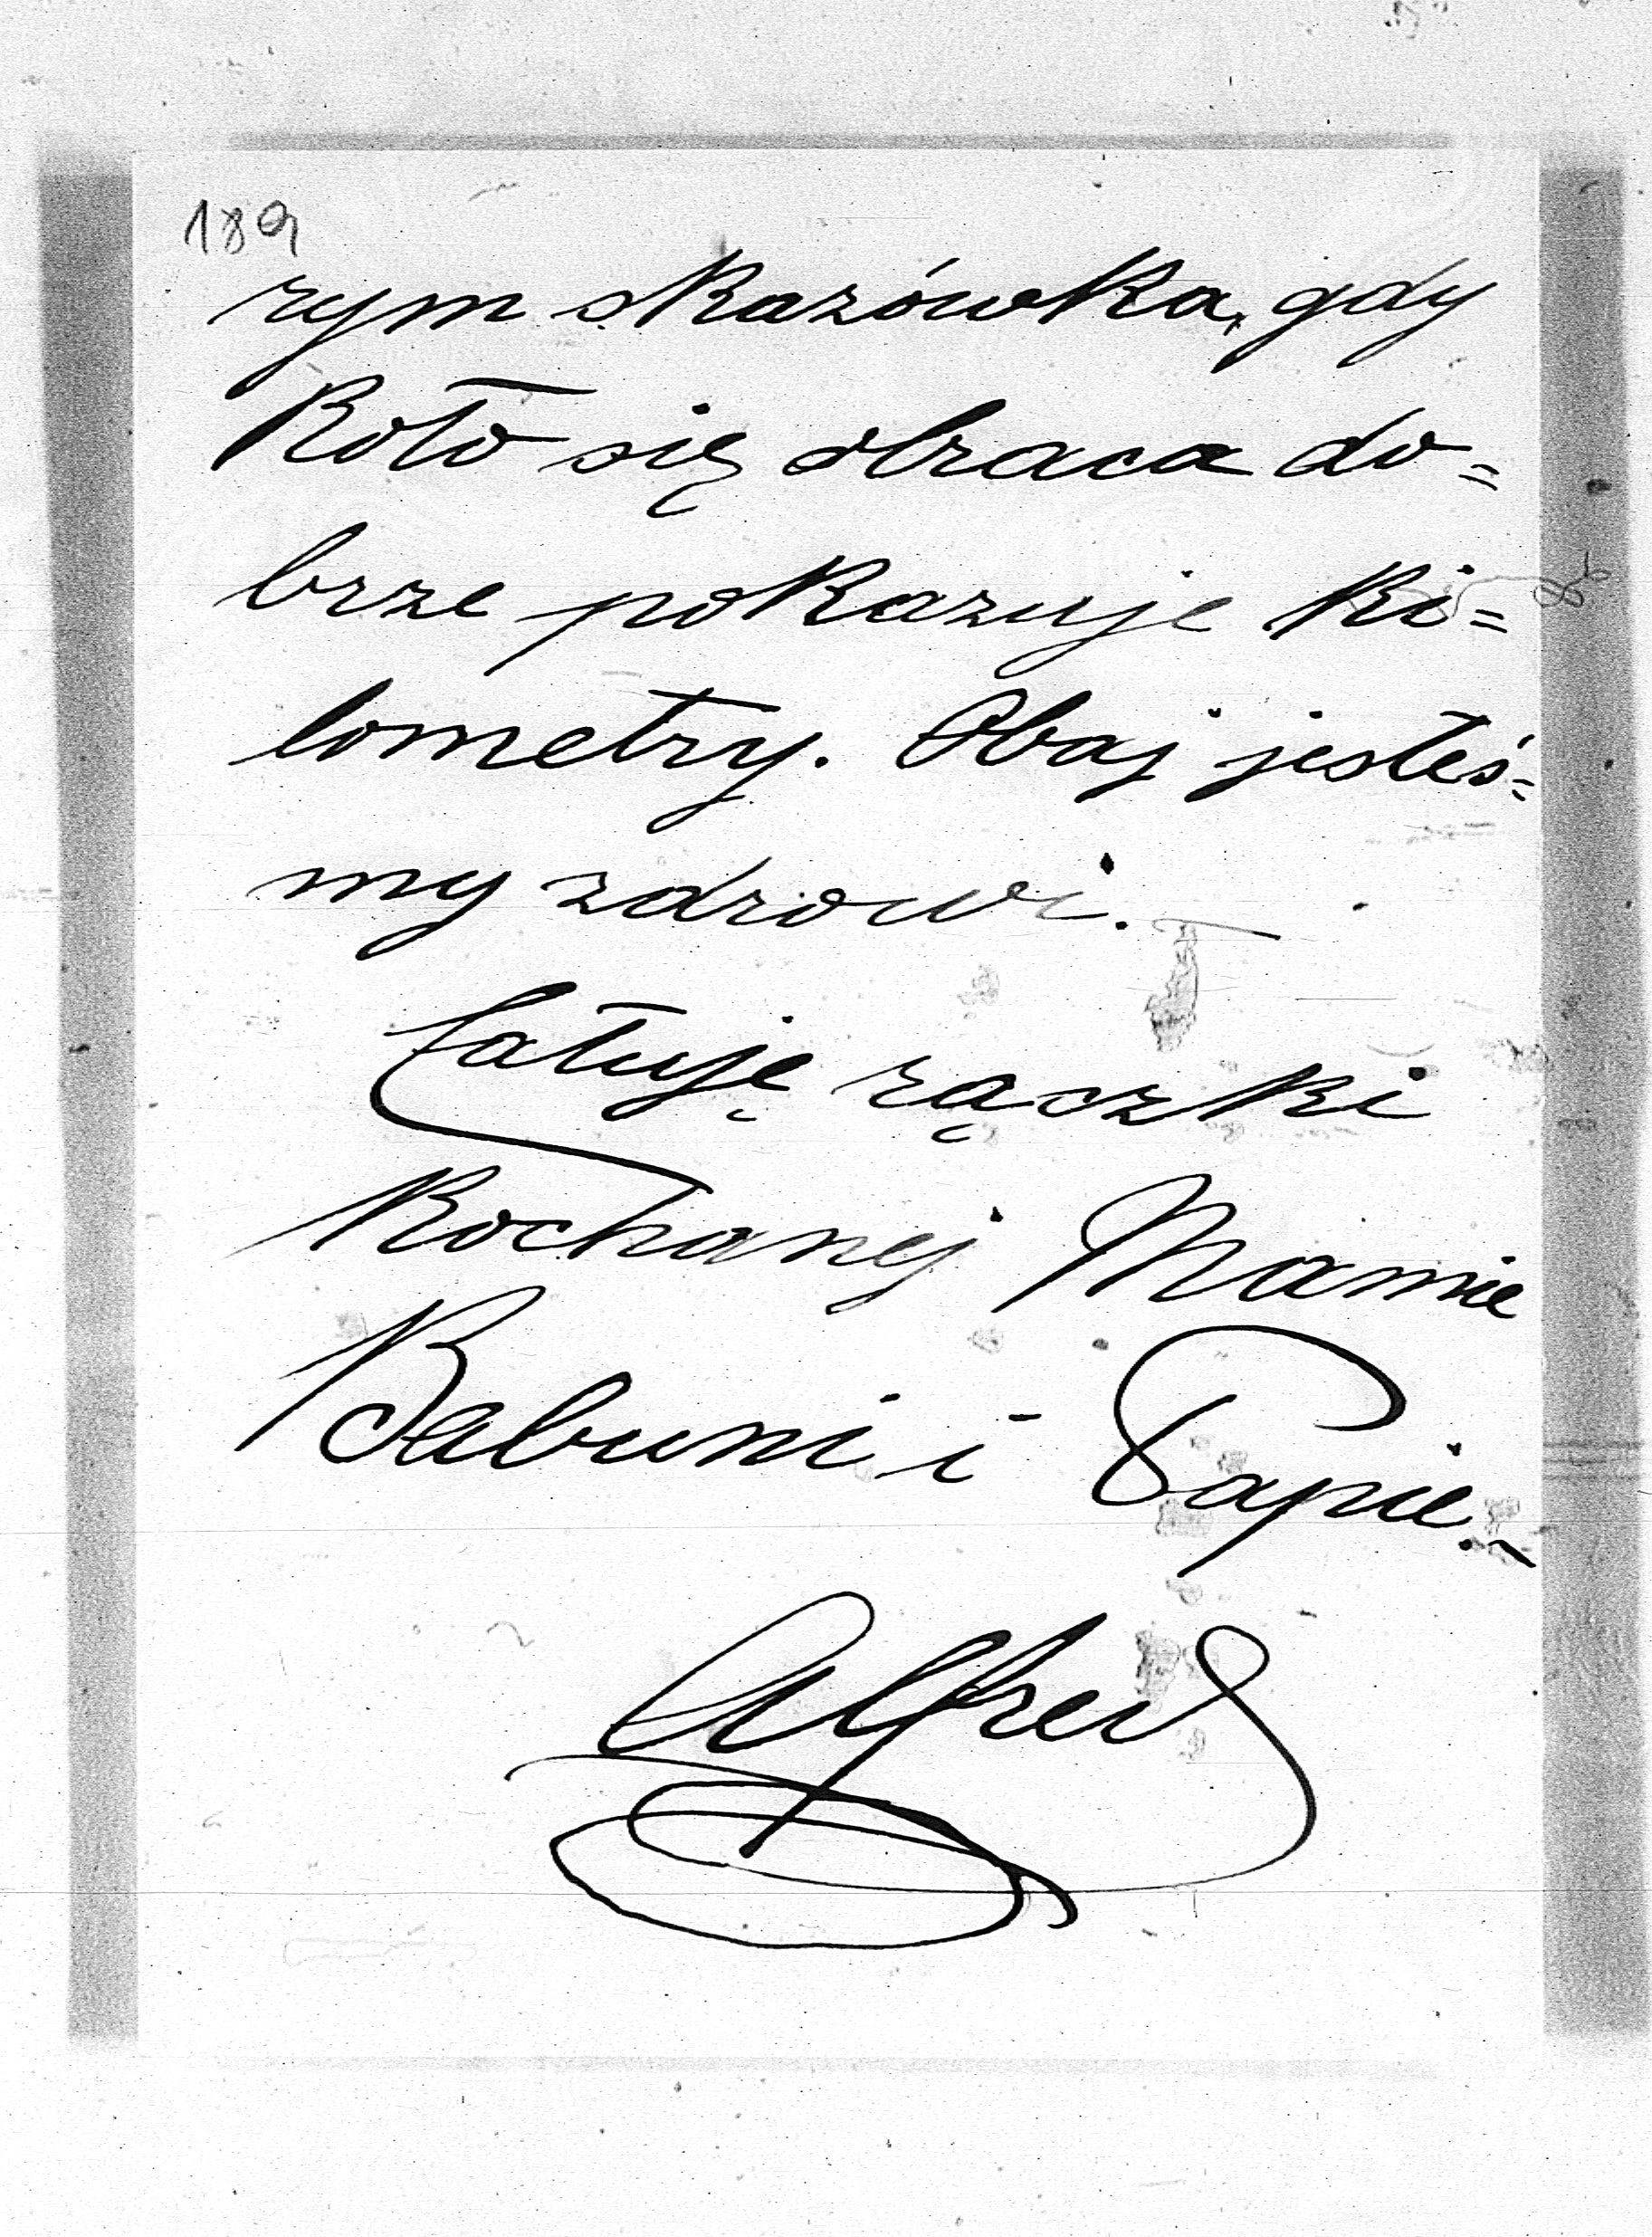 189
rym skazówka, gdy
Koło się obraca do=
brze pokazuje ki=
lometry. Obaj jesteś=
my zdrowi. —
Całuję rączki
Kochanej Mamie
Babuni i Papie. —
Alfred